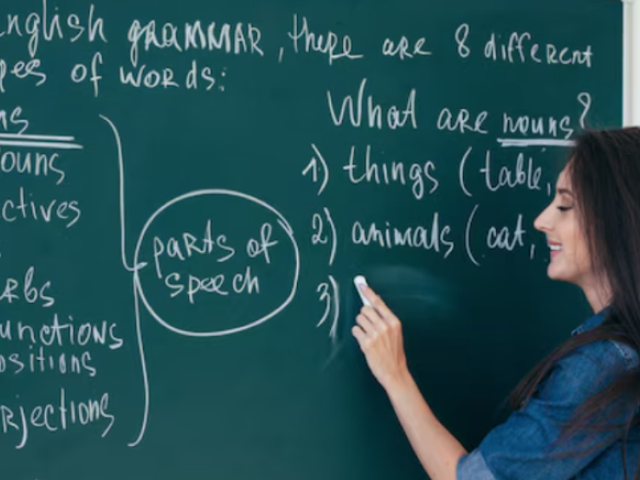 nglish grammar, there are 8 different
pes of words:
ns
ouns
ctives
rbs
unctions
ositions
rjections
parts of
speech
What are nouns?
1) things (table,
2) animals (cat,
3)